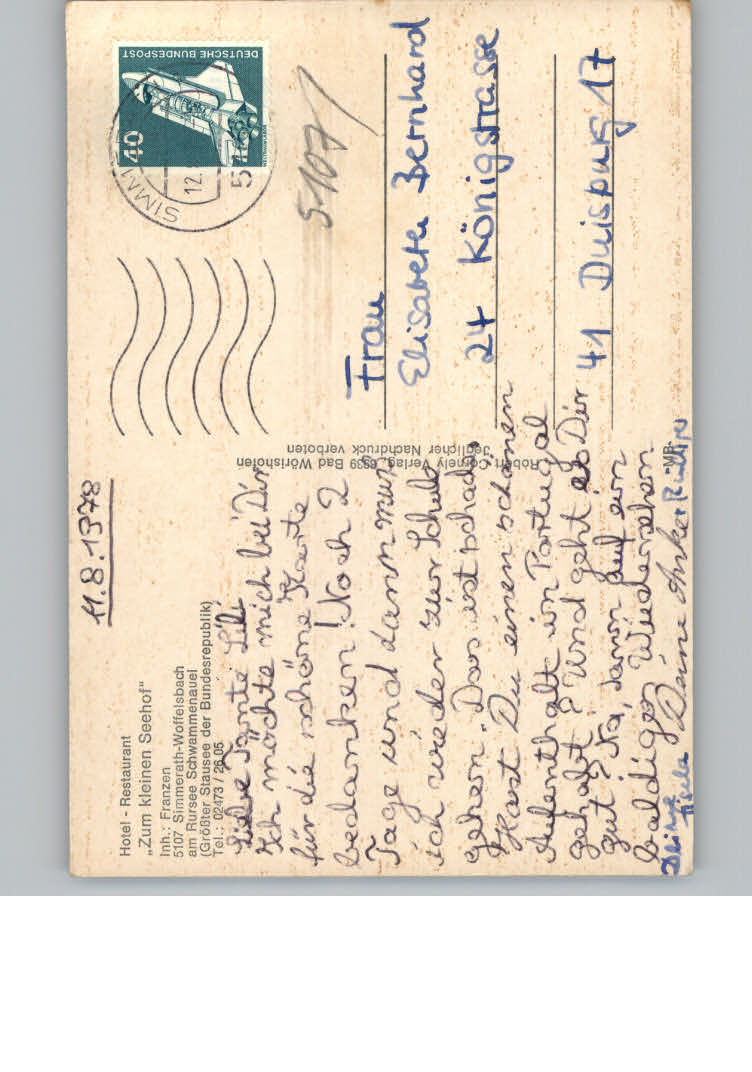 Hotel - Restaurant
„Zum kleinen Seehof"
Inh.: Franzen
5107 Simmerath-Woffelsbach
am Rursee Schwammenauel
(Größter Stausee der Bundesrepublik)
Tel.: 02473 / 26 05
11.8.1978
Liebe Tante Lili
Ich möchte mich bei Dir
für die schöne Karte
bedanken! Noch 2
Tage und dann muß
ich wieder zur Schule
gehen. Das ist schade.
Hast Du einen schönen
Aufenthalt in Portugal
gehabt? Und geht es Dir
gut? Na, dann auf ein
baldiges Wiedersehen
Deine Anke +
Deine
Robert Cornely Verlag, 8939 Bad Wörishofen
Jeglicher Nachdruck verboten
DEUTSCHE BUNDESPOST
40
SIMM
12.
5
5107
Frau
Elisabeth Bernhard
24 Königstrasse
41 Duisburg 17